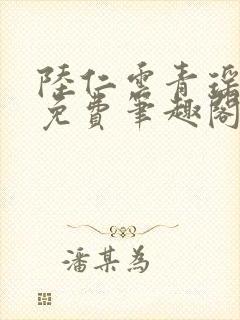 陸仁雲青瑤
免費筆趣閣
潘某為